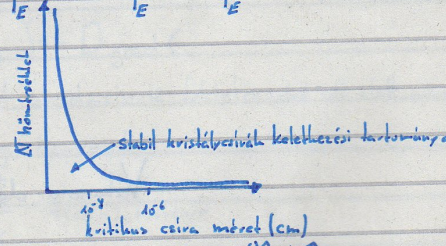 T_E T_E T_E
ΔT hőmérséklet
stabil kristálycsírák keletkezési tartománya
10⁻⁸ 10⁻⁶
kritikus csíra méret (cm)